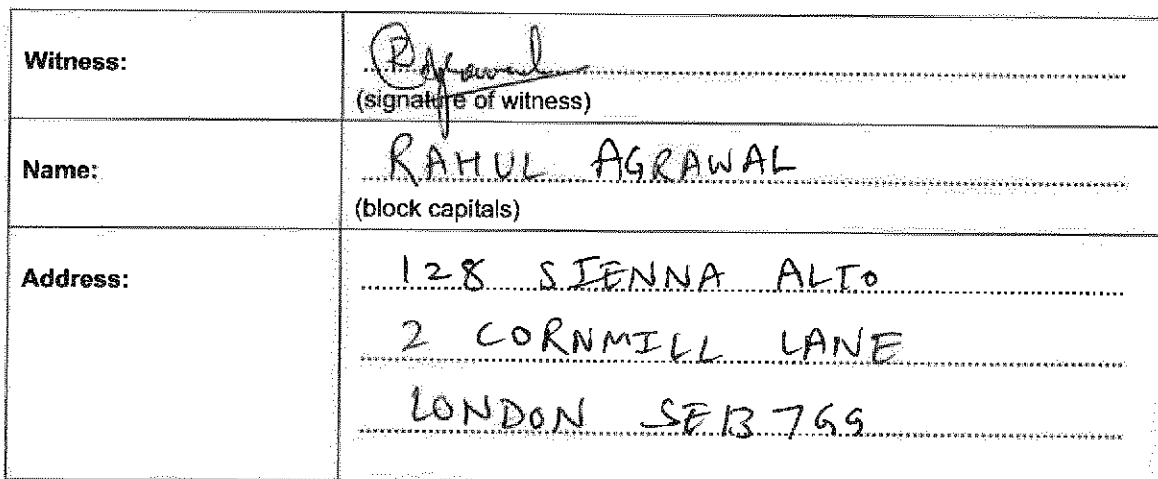 Witness:
RAgrawal
(signature of witness)
Name:
RAHUL AGRAWAL
(block capitals)
Address:
128 SIENNA ALTO
2 CORNMILL LANE
LONDON SE13 7GG